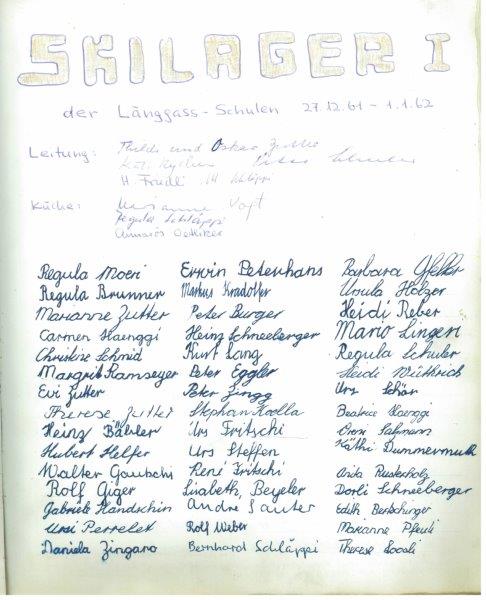 SKILAGER I
der Länggass-Schulen 27.12.61 - 1.1.62
Leitung: und Oskar Zutter
H. Friedli
Küche: Marianne Vogt
Regula Schläppi
Annarös Oetliker
Regula Moeri Erwin Petenhans Barbara Gfeller
Regula Brunner Markus Kradolfer Ursula Holzer
Marianne Zutter Peter Burger Heidi Reber
Carmen Haenggi Heinz Schneeberger Mario Lingeri
Christine Schmid Kurt Lang Regula Schuler
Margrit Ramseyer Peter Eggler Heidi Wüthrich
Evi Zutter Peter Zingg Urs Schär
Therese Zutter Stephan Kolla Beatrice Haenggi
Heinz Bähler Urs Fritschi
Hubert Helfer Urs Steffen Käthi Dummermuth
Walter Gautschi René Fritschi Anita Rusterholz
Rolf Giger Lisabeth Beyeler Dorli Schneeberger
Gabriele Handschin Andre Sauter Edith Bertschinger
Ursi Perrelet Rolf Weber Marianne Pfeuti
Daniela Zingaro Bernhard Schläppi Therese